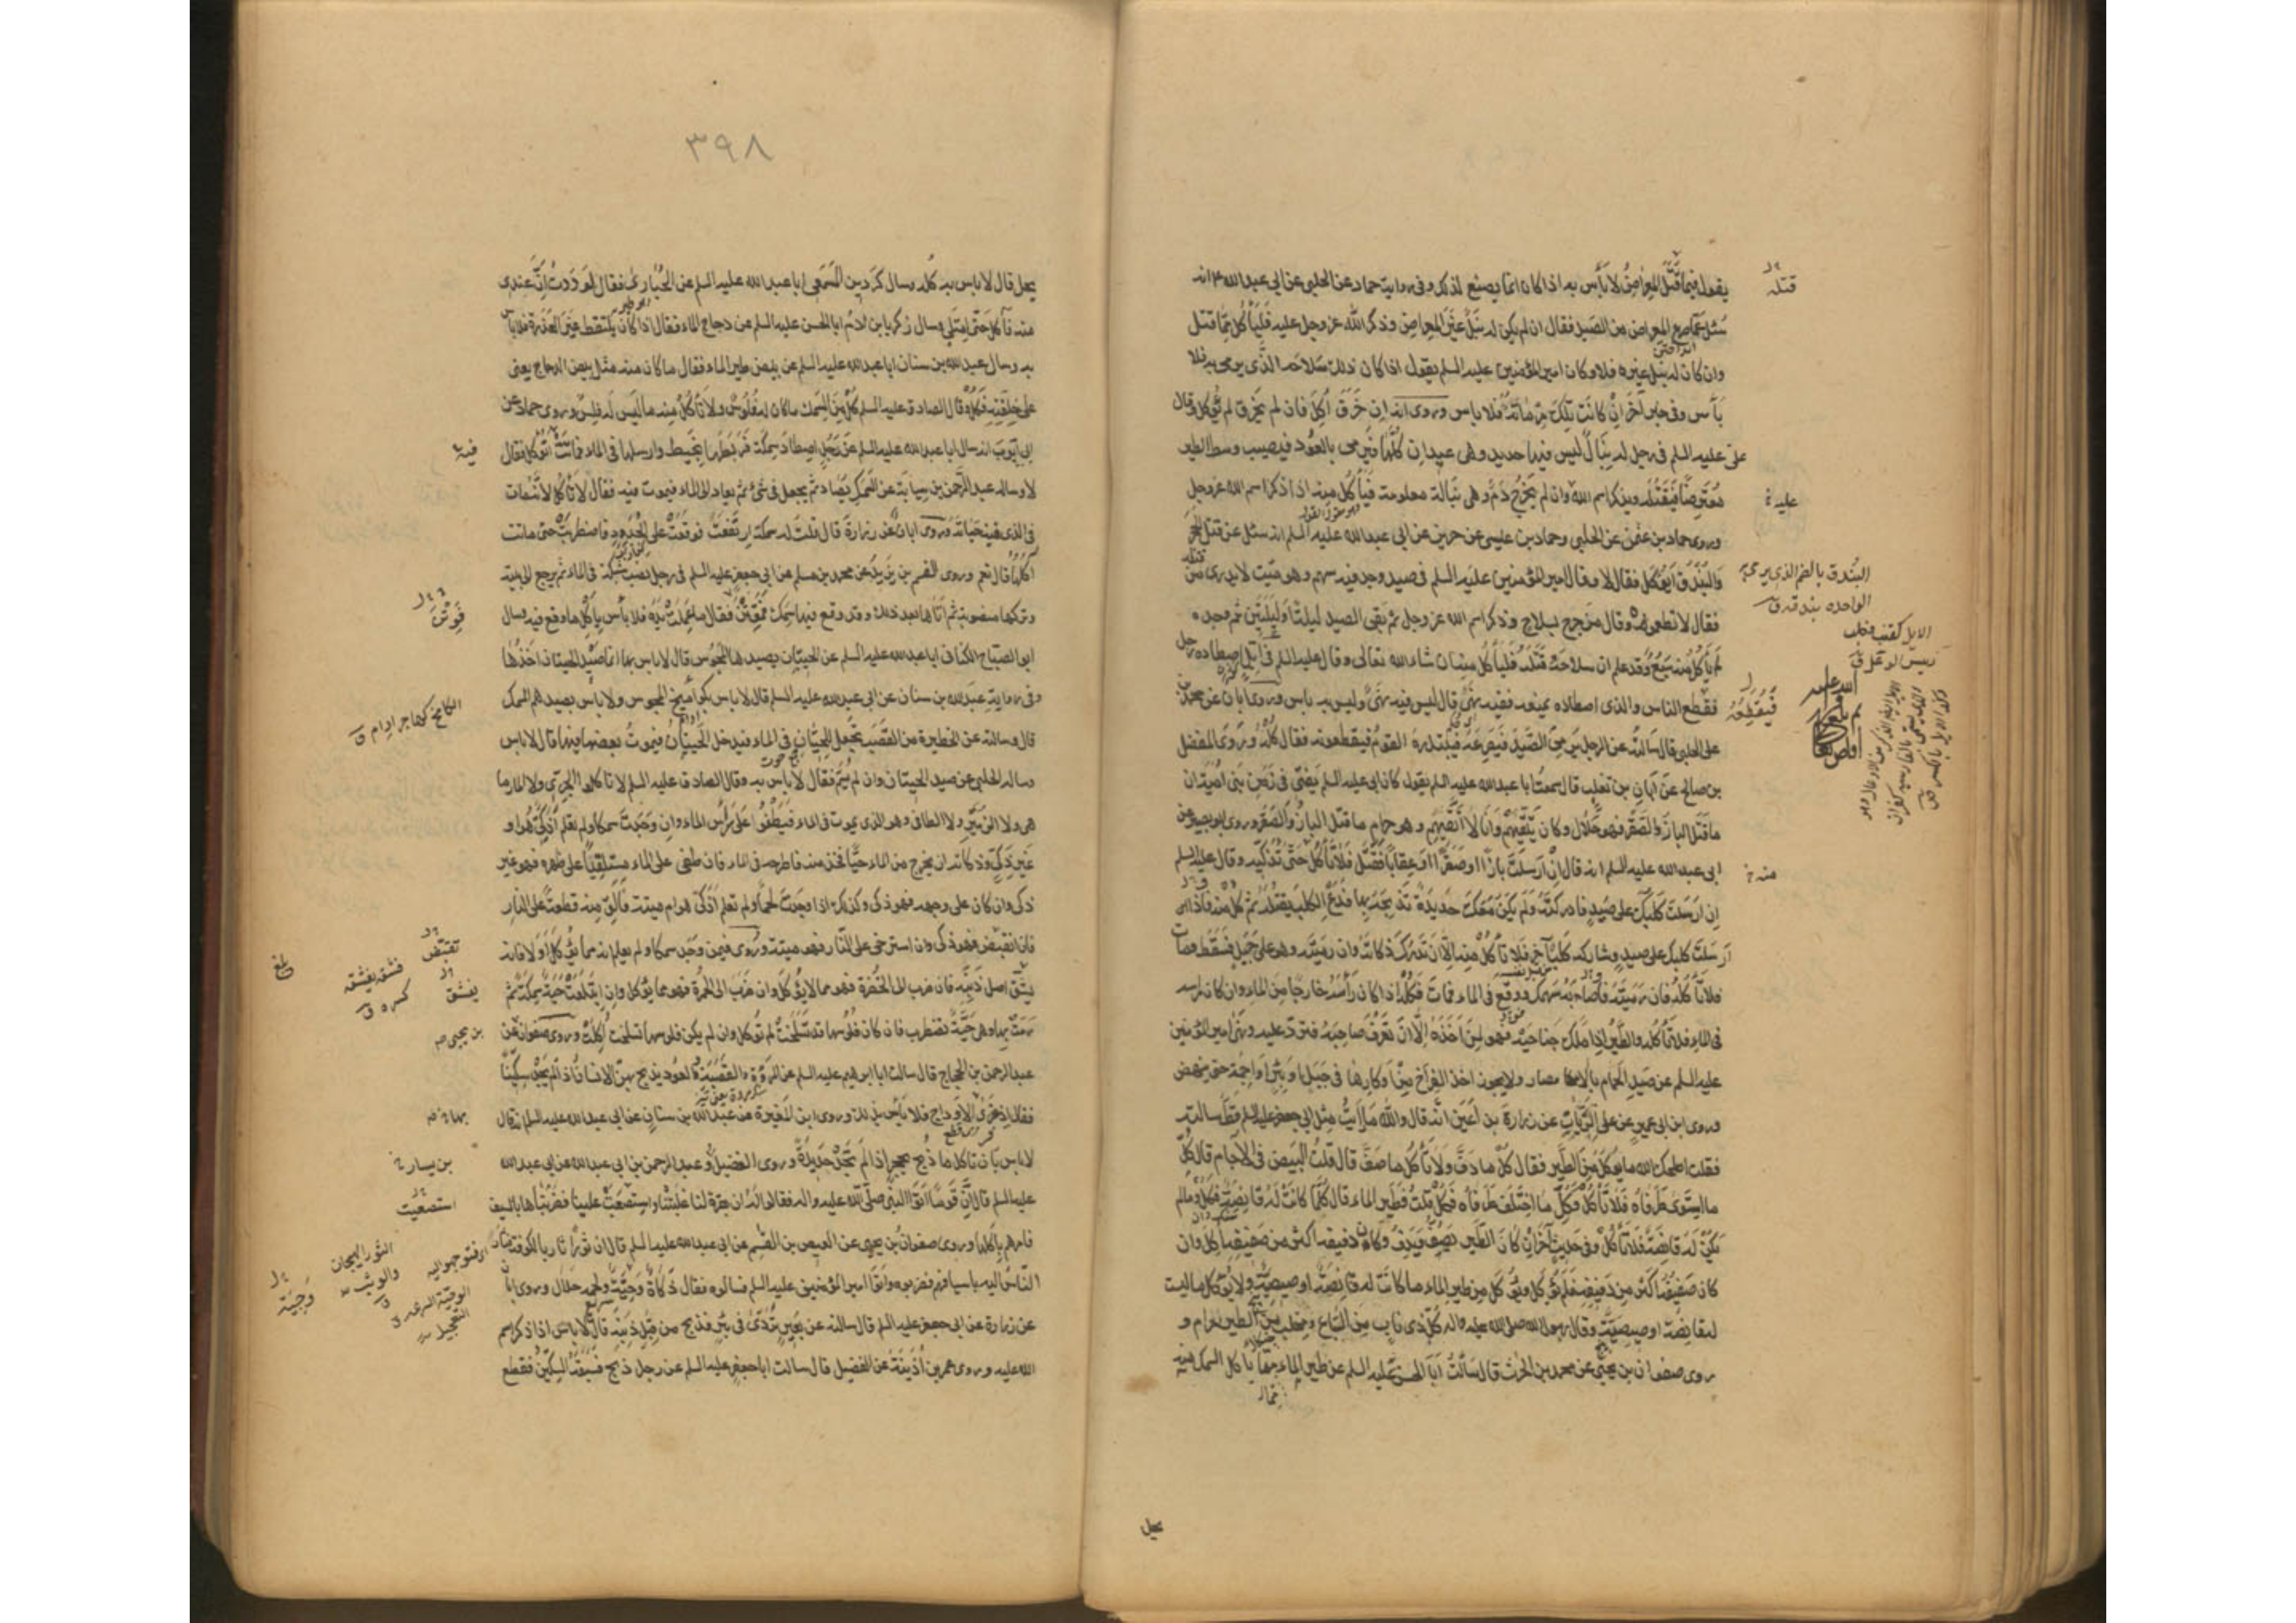 يقول فيما قتل المعراض لا بأس به اذا كان انما يصنع لذلك وفى رواية حماد عن الحلبى عن ابى عبد الله ع انه
سئل عما صرع المعراض من الصيد فقال ان لم يكن له نبل غير المعراض وذكر الله عز وجل عليه فليأكل مما قتل
وان كان له نبل غيره فلا وكان امير المؤمنين عليه السلم يقول اذا كان ذلك سلاحه الذى يرمى به فلا
بأس وفى خبر آخر ان كانت تلك مرماته فلا باس وروى انه ان خرق اكل فان لم يخرق لم يؤكل وقال
على عليه السلم فى رجل له نبال ليس فيها حديد وهى عيدان كلها فيرمى بالعود فيصيب وسط الطير
معترضا فيقتله ويذكر اسم الله وان لم يخرج دم وهى نبالة معلومة فيأكل منه اذا ذكر اسم الله عز وجل
وروى حماد بن عثمن عن الحلبى وحماد بن عيسى عن حريز عن ابى عبد الله عليه السلم انه سئل عن قتل الحجر
والبندق ايؤكل فقال لا وقال امير المؤمنين عليه السلم فى صيد وجد فيه سهم وهو ميت لا يدرى من
فقال لا تطعموه وقال من جرح بسلاح وذكر اسم الله عز وجل ثم بقى الصيد ليلة او ليلتين ثم وجده
لم يأكل منه سبع وقد علم ان سلاحه قتله فليأكل منه ان شاء الله تعالى وقال عليه السلم فى ايل اصطاده رجل
فقطع الناس والذى اصطاده يمنعه ففيه نهى قال ليس فيه نهى وليس به باس وروى ابان عن محمد
على الحلبى قال سالته عن الرجل يرمى الصيد فيصرعه فيبتدره القوم فيقطعونه فقال كله وروى المفضل
بن صالح عن ابان بن تغلب قال سمعت ابا عبد الله عليه السلم يقول كان ابى عليه السلم يفتى فى زمن بنى امية ان
ما قتل الباز والصقر فهو حلال وكان يتقيهم وانا لا اتقيهم وهو حرام ما قتل الباز والصقر وروى ابو بصير عن
ابى عبد الله عليه السلم انه قال ان ارسلت بازا او صقرا او عقابا فقتل فلا تأكل حتى تذكيه وقال عليه السلم
ان ارسلت كلبك على صيد فادركته ولم يكن معك حديدة تذبحه بها فدع الكلب يقتله ثم كل منه فاذا
ارسلت كلبك على صيد وشاركه كلب آخر فلا تأكل منه الا ان تدرك ذكاته وان رميته وهو على جبل فسقط فمات
فلا تأكله فان رميته فاصابه سهمك ووقع فى الماء فمات فكله اذا كان رأسه خارجا من الماء وان كان راسه
فى الماء فلا تأكله والطير اذا ملك جناحيه فهو لمن اخذه الا ان تعرف صاحبه فترد عليه ونهى امير المؤمنين
عليه السلم عن صيد الحمام بالامصار ولا يجوز اخذ الفراخ من اوكارها فى جبل او بئر او اجمة حتى ينهض
وروى ابن ابى عمير عن على الزيات عن زرارة بن اعين انه قال والله ما رأيت مثل ابى جعفر عليه السلم قط سالته
فقلت اصلحك الله ما يؤكل من الطير فقال كل ما دف ولا تأكل ما صف قال قلت البيض فى الاجام قال كل
ما استوى طرفاه فلا تأكل وكل ما اختلف طرفاه فكل قلت فطير الماء قال كلما كانت له قانصة فكل وما لم
يكن له قانصة فلا تأكل وفى حديث آخر ان كان الطير يصف ويدف وكان دفيفه اكثر من صفيفه اكل وان
كان صفيفه اكثر من دفيفه فلم يؤكل ويؤكل من طير الماء ما كانت له قانصة او صيصية ولا يؤكل ما ليست
له قانصة او صيصية وقال رسول الله صلى الله عليه واله كل ذى ناب من السباع ومخلب من الطير حرام و
روى صفوان بن يحيى عن محمد بن الحرث قال سألت ابا الحسن عليه السلم عن طير الماء مما يأكل السمك منه
يحل
قتله
عليه
البندق بالضم الذى يرمى به
الواحدة بندقة ق
فيقطعه
منه
٣٩٨
يحل قال لا باس به كله وسال كردين المسمعى ابا عبد الله عليه السلم عن الحبارى فقال لوددت ان عندى
منه فآكل حتى امتلى وسال زكريا بن ادم ابا الحسن عليه السلم عن دجاج الماء فقال اذا كان يلتقط غير العذرة فلا بأس
به وسال عبد الله بن سنان ابا عبد الله عليه السلم عن بيض طير الماء فقال ما كان منه مثل بيض الدجاج يعنى
على خلقته فكل وقال الصادق عليه السلم كل من السمك ما كان له فلوس ولا تأكل منه ما ليس له فلس وروى حماد عن
ابى ايوب انه سال ابا عبد الله عليه السلم عن رجل اصطاد سمكة فربطها بخيط وارسلها فى الماء فماتت اتؤكل فقال
لا وساله عبد الرحمن بن سيابة عن السمك يصاد ثم يجعل فى شئ ثم يعاد الى الماء فيموت فيه فقال لا تأكل لانه مات
فى الذى فيه حياته وروى ابان عن زرارة قال قلت له سمكة ارتفعت فوقعت على الجدد فاضطربت حتى ماتت
آكلها قال نعم وروى القسم بن بريد عن محمد بن مسلم عن ابى جعفر عليه السلم فى رجل نصب شبكة فى الماء ثم يرجع الى بيته
وتركها منصوبة ثم اتاها بعد ذلك وقد وقع فيها سمك فيمتن فقال ما عملت يده فلا بأس باكل ما وقع فيه وسال
ابو الصباح الكنانى ابا عبد الله عليه السلم عن الحيتان يصيدها المجوس قال لا باس بها انما صيد الحيتان اخذها
وفى رواية عبد الله بن سنان عن ابى عبد الله عليه السلم قال لا باس بكواميخ المجوس ولا بأس بصيدهم السمك
قال وسالته عن الحظيرة من القصب تجعل للحيتان فى الماء فيدخل الحيتان فيموت بعضها فيها قال لا باس
وساله الحلبى عن صيد الحيتان وان لم يسم فقال لا بأس به وقال الصادق عليه السلم لا تاكلوا الجرى ولا المارما
هى ولا الزمير ولا الطافى وهو الذى يموت فى الماء فيطفو على رأس الماء وان وجدت سمكا ولم تعلم اذكى هو او
غير ذكى وذكاته ان يخرج من الماء حيا فخذ منه فاطرحه فى الماء فان طفى على الماء مستلقيا على ظهره فهو غير
ذكى وان كان على وجهه فهو ذكى وكذلك اذا وجدت لحما ولم تعلم اذكى هو ام ميتة فالق منه قطعة على النار
فان انقبض فهو ذكى وان استرخى على النار فهو ميتة وروى فيمن وجد سمكا ولم يعلم انه مما يؤكل او لا فانه
يشق اصل ذنبه فان ضرب الى الخضرة فهو مما لا يؤكل وان ضرب الى الحمرة فهو مما يؤكل وان ابتلعت حية سمكة ثم
رمت بها وهى حية تضطرب فان كان فلوسها قد تسلخت لم تؤكل وان لم يكن فلوسها تسلخت اكلت وروى صفوان عن
عبد الرحمن بن الحجاج قال سالت ابا ابرهيم عليه السلم عن المروة والقصبة والعود يذبح بهن الانسان اذا لم يجد سكينا
فقال اذا فرى الاوداج فلا بأس بذلك وروى ابن المغيرة عن عبد الله بن سنان عن ابى عبد الله عليه السلم انه قال
لا باس بان تاكل ما ذبح بحجر اذا لم تجد حديدة وروى الفضيل وعبد الرحمن بن ابى عبد الله عن ابى عبد الله
عليه السلم قال ان قوما اتوا النبى صلى الله عليه واله فقالوا له ان بقرة لنا غلبتنا واستصعبت علينا فضربناها بالسيف
فامرهم باكلها وروى صفوان بن يحيى عن العيص بن القسم عن ابى عبد الله عليه السلم قال ان ثورا ثار بالكوفة فثار
الناس اليه باسيافهم فضربوه واتوا امير المؤمنين عليه السلم فسالوه فقال ذكاة وحية ولحمه حلال وروى ابان
عن زرارة عن ابى جعفر عليه السلم قال سالته عن بعير تردى فى بئر فذبح من قبل ذنبه قال لا باس اذا ذكر اسم
الله عليه وروى عمر بن اذينة عن الفضيل قال سالت ابا جعفر عليه السلم عن رجل ذبح فسبقه السكين فقطع
فيه
الكامخ كهاجر ادام ق
تقبض
بلغ
فشقه يفشقه
كسره ق
يفشق
بن يحيى
بها
بن يسار
استصعبت